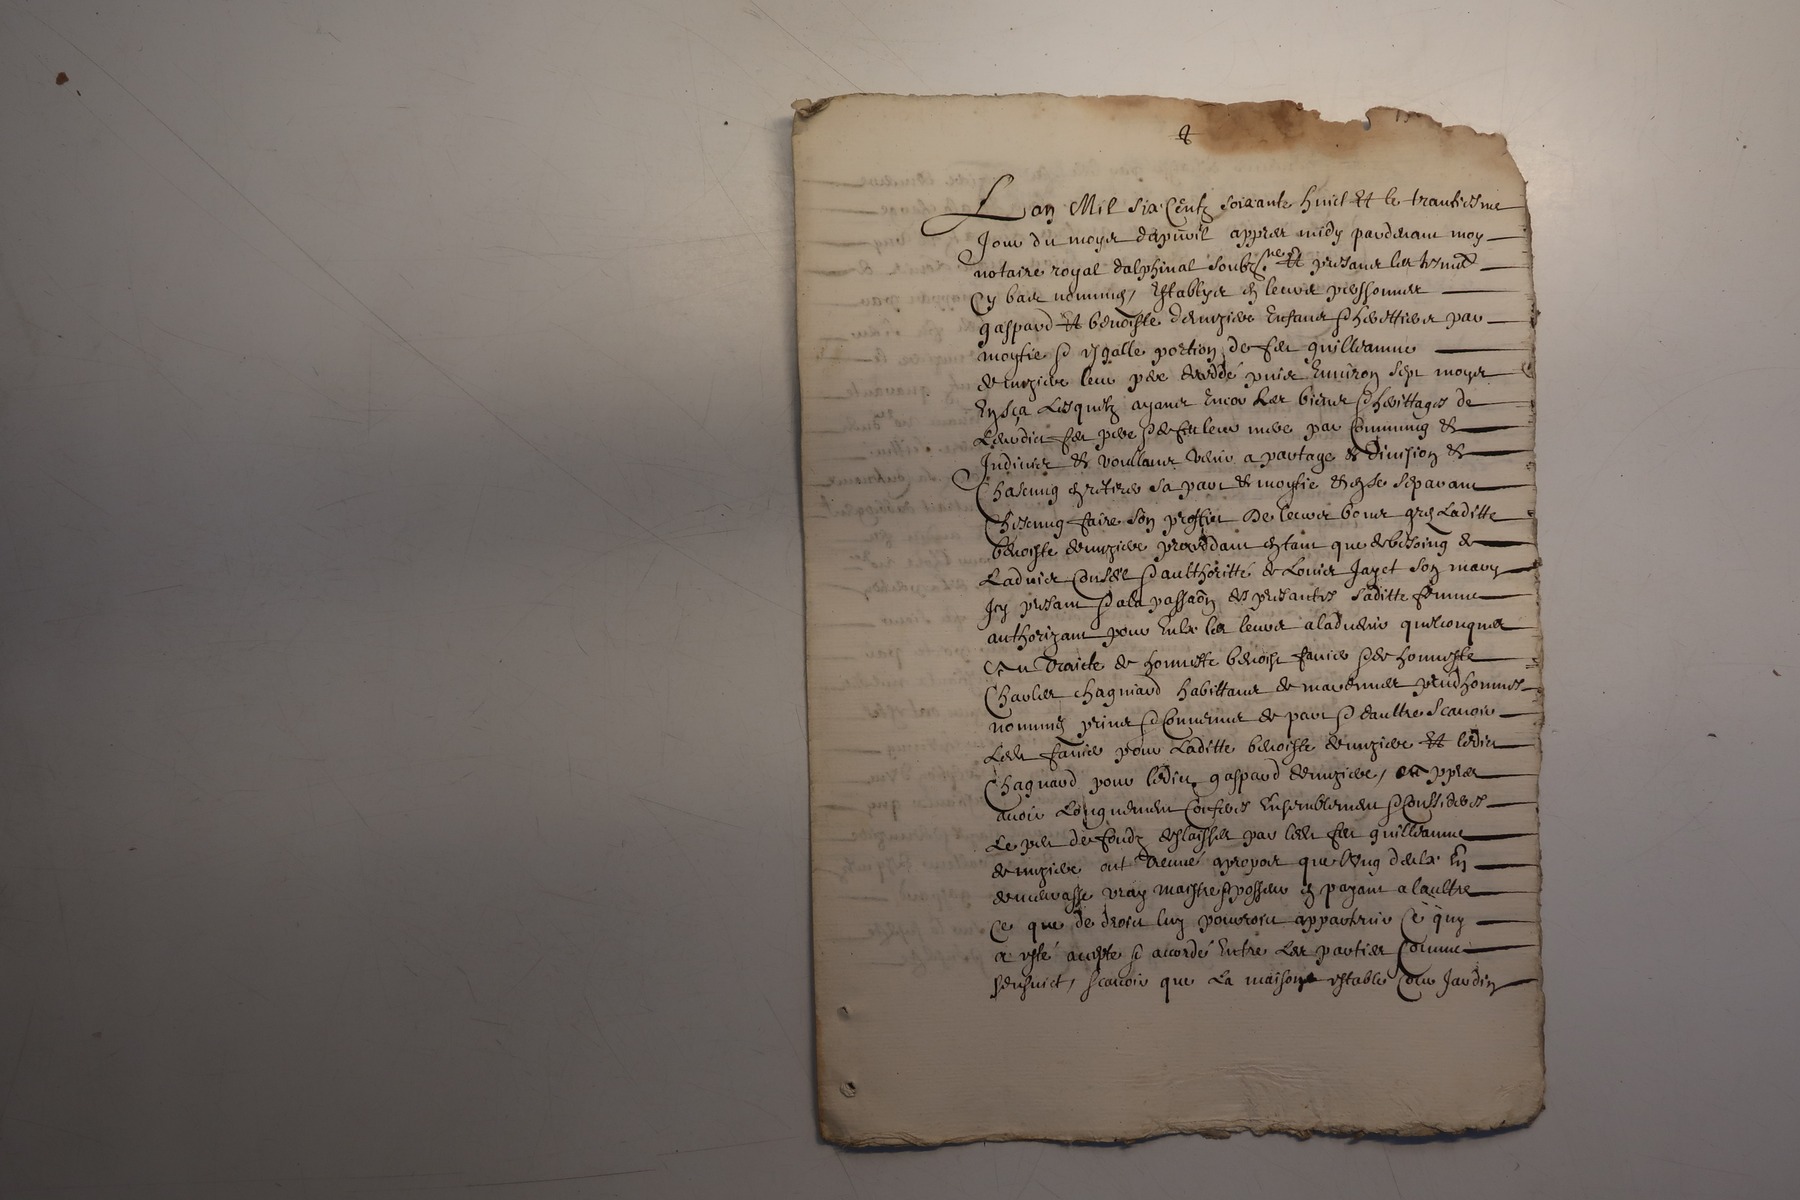 Lan Mil six Centz soixante huict Et le trantiesme
Jour du moys dapvril appres midy pardevant moy
notaire royal dalphinal soubz.ne Et presans les tesmé
Cy bas nommes, Establys en leurs perssonnes
gaspard Et benoiste demeziere Enfans & herettiers par
moytie & esgalle portion de feu guilleaume
demeziere leur pere deceddé puis Environ sept moys
En sça Lesquelz ayans Encor Les biens & herittages de
Leurdict feu pere & de feu leur mere par Commung &
Indivis & voullans venir a partage & division &
Chascung retirer sa part & moytie & se separant
Chascung faire son proffict De leurs bons gres Laditte
benoiste demeziere proceddant en tant que de besoing de
Ladvis Conseil & authoritté de Louis Jayet son mary
Jcy presant & a la passaōn des presantes Laditte femme
authorizant pour Eulx les leurs a ladvenir quelconques
au traicte de honneste benoist favier & de honneste
Charles chagniard habittans de preudhommes
nommes prins & Convenus de part & daultre Scavoir
Led. favier pour Laditte benoiste demeziere Et ledict
Chagniard pour ledict gaspard demeziere, appres
avoir Longuement Conferes Ensemblement & Conssideres
Le peu de fondz deslaisses par led. feu guilleaume
demeziere ont treuve apropos que lung deulx En
demeurasse vray maistre & possesseur en payant a laultre
Ce que de droict luy pourroict appartenir Ce quy
a esté accepte & accordé Entre Les parties Comme
sensuict, scavoir que La maison estable Cour Jardin